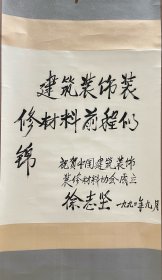 建筑装饰装
修材料前程似
锦
祝贺中国建筑装饰
装修材料协会成立
徐志坚 一九九〇年九月